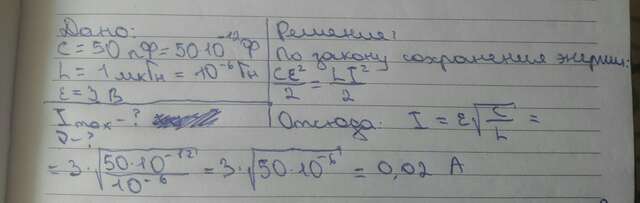 Дано:
C = 50 пФ = 50·10⁻¹² Ф
L = 1 мкГн = 10⁻⁶ Гн
ε = 3 В
I max - ?
υ - ?
Решение:
По закону сохранения энергии:
Cε²/2 = LI²/2
Отсюда: I = ε√(C/L) =
= 3·√(50·10⁻¹²/10⁻⁶) = 3·√(50·10⁻⁶) = 0,02 А